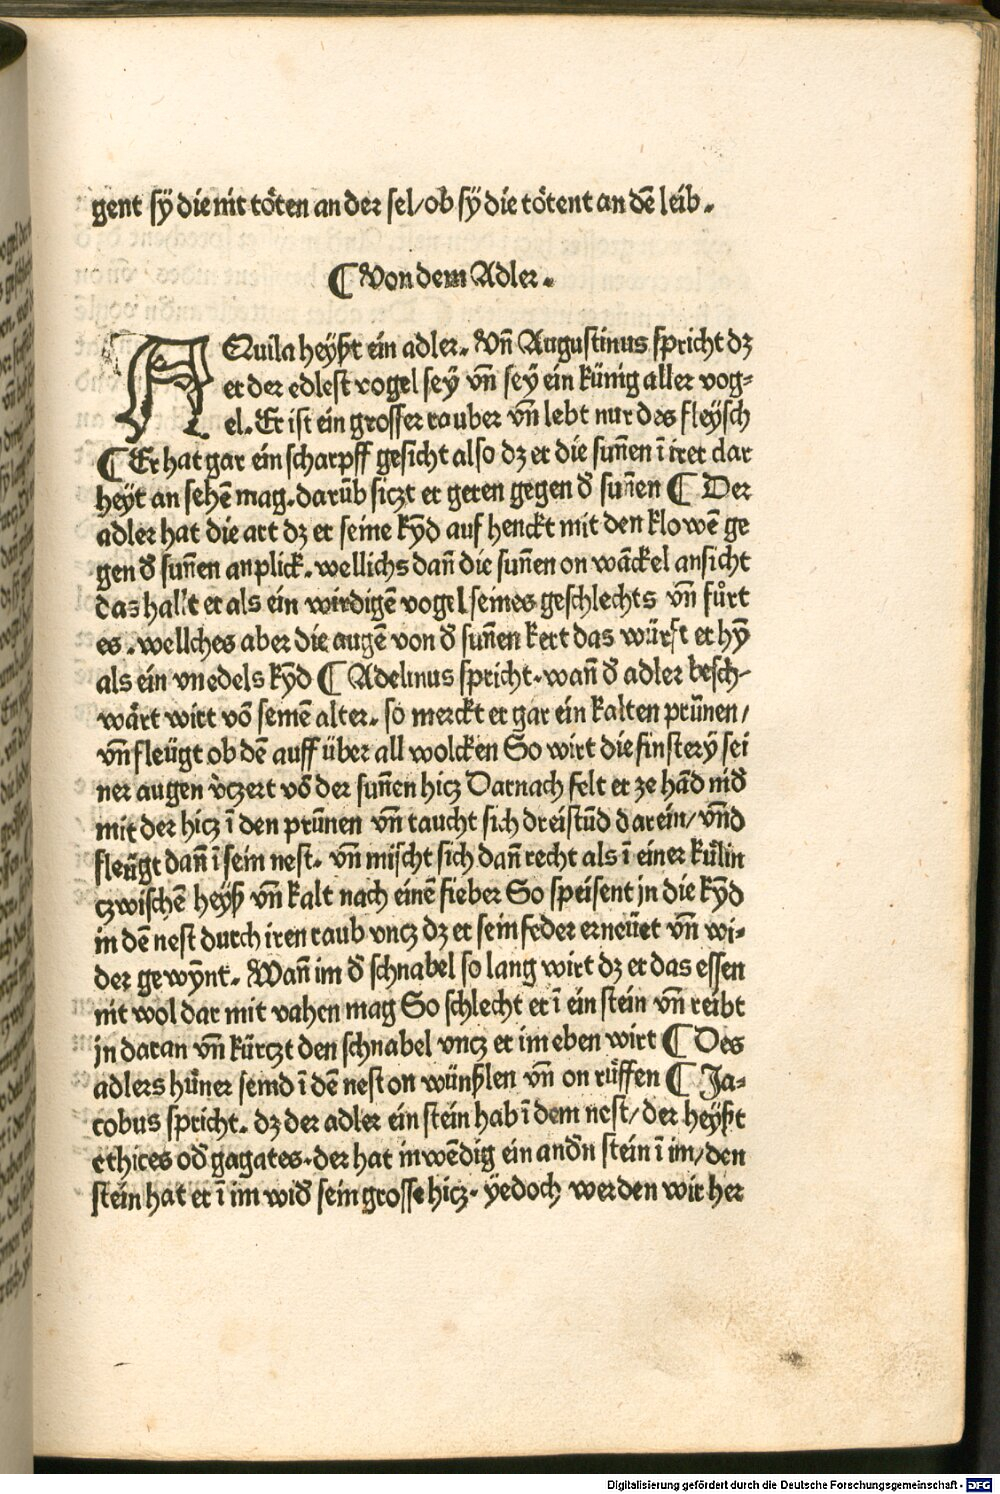 gent sÿ die nit töten an der sel/ob sÿ die tötent an dē leib.
¶ Von dem Adler.
AQuila heyßt ein adler. Vn̄ Augustinus spricht dz
er der edlest vogel seÿ vn̄ seÿ ein künig aller vog⸗
el. Er ist ein grosser rauber vn̄ lebt nur des fleÿsch
¶ Er hat gar ein scharpff gesicht also dz er die sun̄en ī irer clar
heÿt an sehē mag. darūb siczt er geren gegen d̄ sun̄en ¶ Der
adler hat die art dz er seine kȳd auf henckt mit den klowē ge
gen d̄ sun̄en anplick. wellichs dan̄ die sun̄en on wāckel ansicht
das hallt er als ein wirdigē vogel seines geschlechts vn̄ fůrt
es. wellches aber die augē von d̄ sun̄en kert das würft er hȳ
als ein vnedels kȳd ¶ Adelinus spricht. wan̄ d̄ adler besch⸗
wärt wirt vō seinē alter. so merckt er gar ein kalten prūnen/
vn̄ fleügt ob dē auff über all wolcken So wirt die finsterÿ sei
ner augen v̄czert vō der sun̄en hicz Darnach felt er ze hād nid̄
mit der hicz ī den prūnen vn̄ taucht sich dreistūd darein/ vn̄d
fleügt dan̄ ī sein nest. vn̄ mischt sich dan̄ recht als ī einer külin
czwischē heyß vn̄ kalt nach einē fieber So speisent jn die kȳd
in dē nest durch iren raub vncz dz er sein feder erneüet vn̄ wi⸗
der gewȳnt. Wan̄ im d̄ schnabel so lang wirt dz er das essen
nit wol dar mit vahen mag So schlecht er ī ein stein vn̄ reibt
jn daran vn̄ kürczt den schnabel vncz er im eben wirt ¶ Des
adlers hüner seind ī dē nest on wünßlen vn̄ on rüffen ¶ Ja⸗
cobus spricht. dz der adler ein stein hab ī dem nest/ der heyßt
ethices od̄ gagates. der hat inwēdig ein and̄n stein ī im/ den
stein hat er ī im wid̄ sein grosse hicz. ÿedoch werden wir her
Digitalisierung gefördert durch die Deutsche Forschungsgemeinschaft - DFG